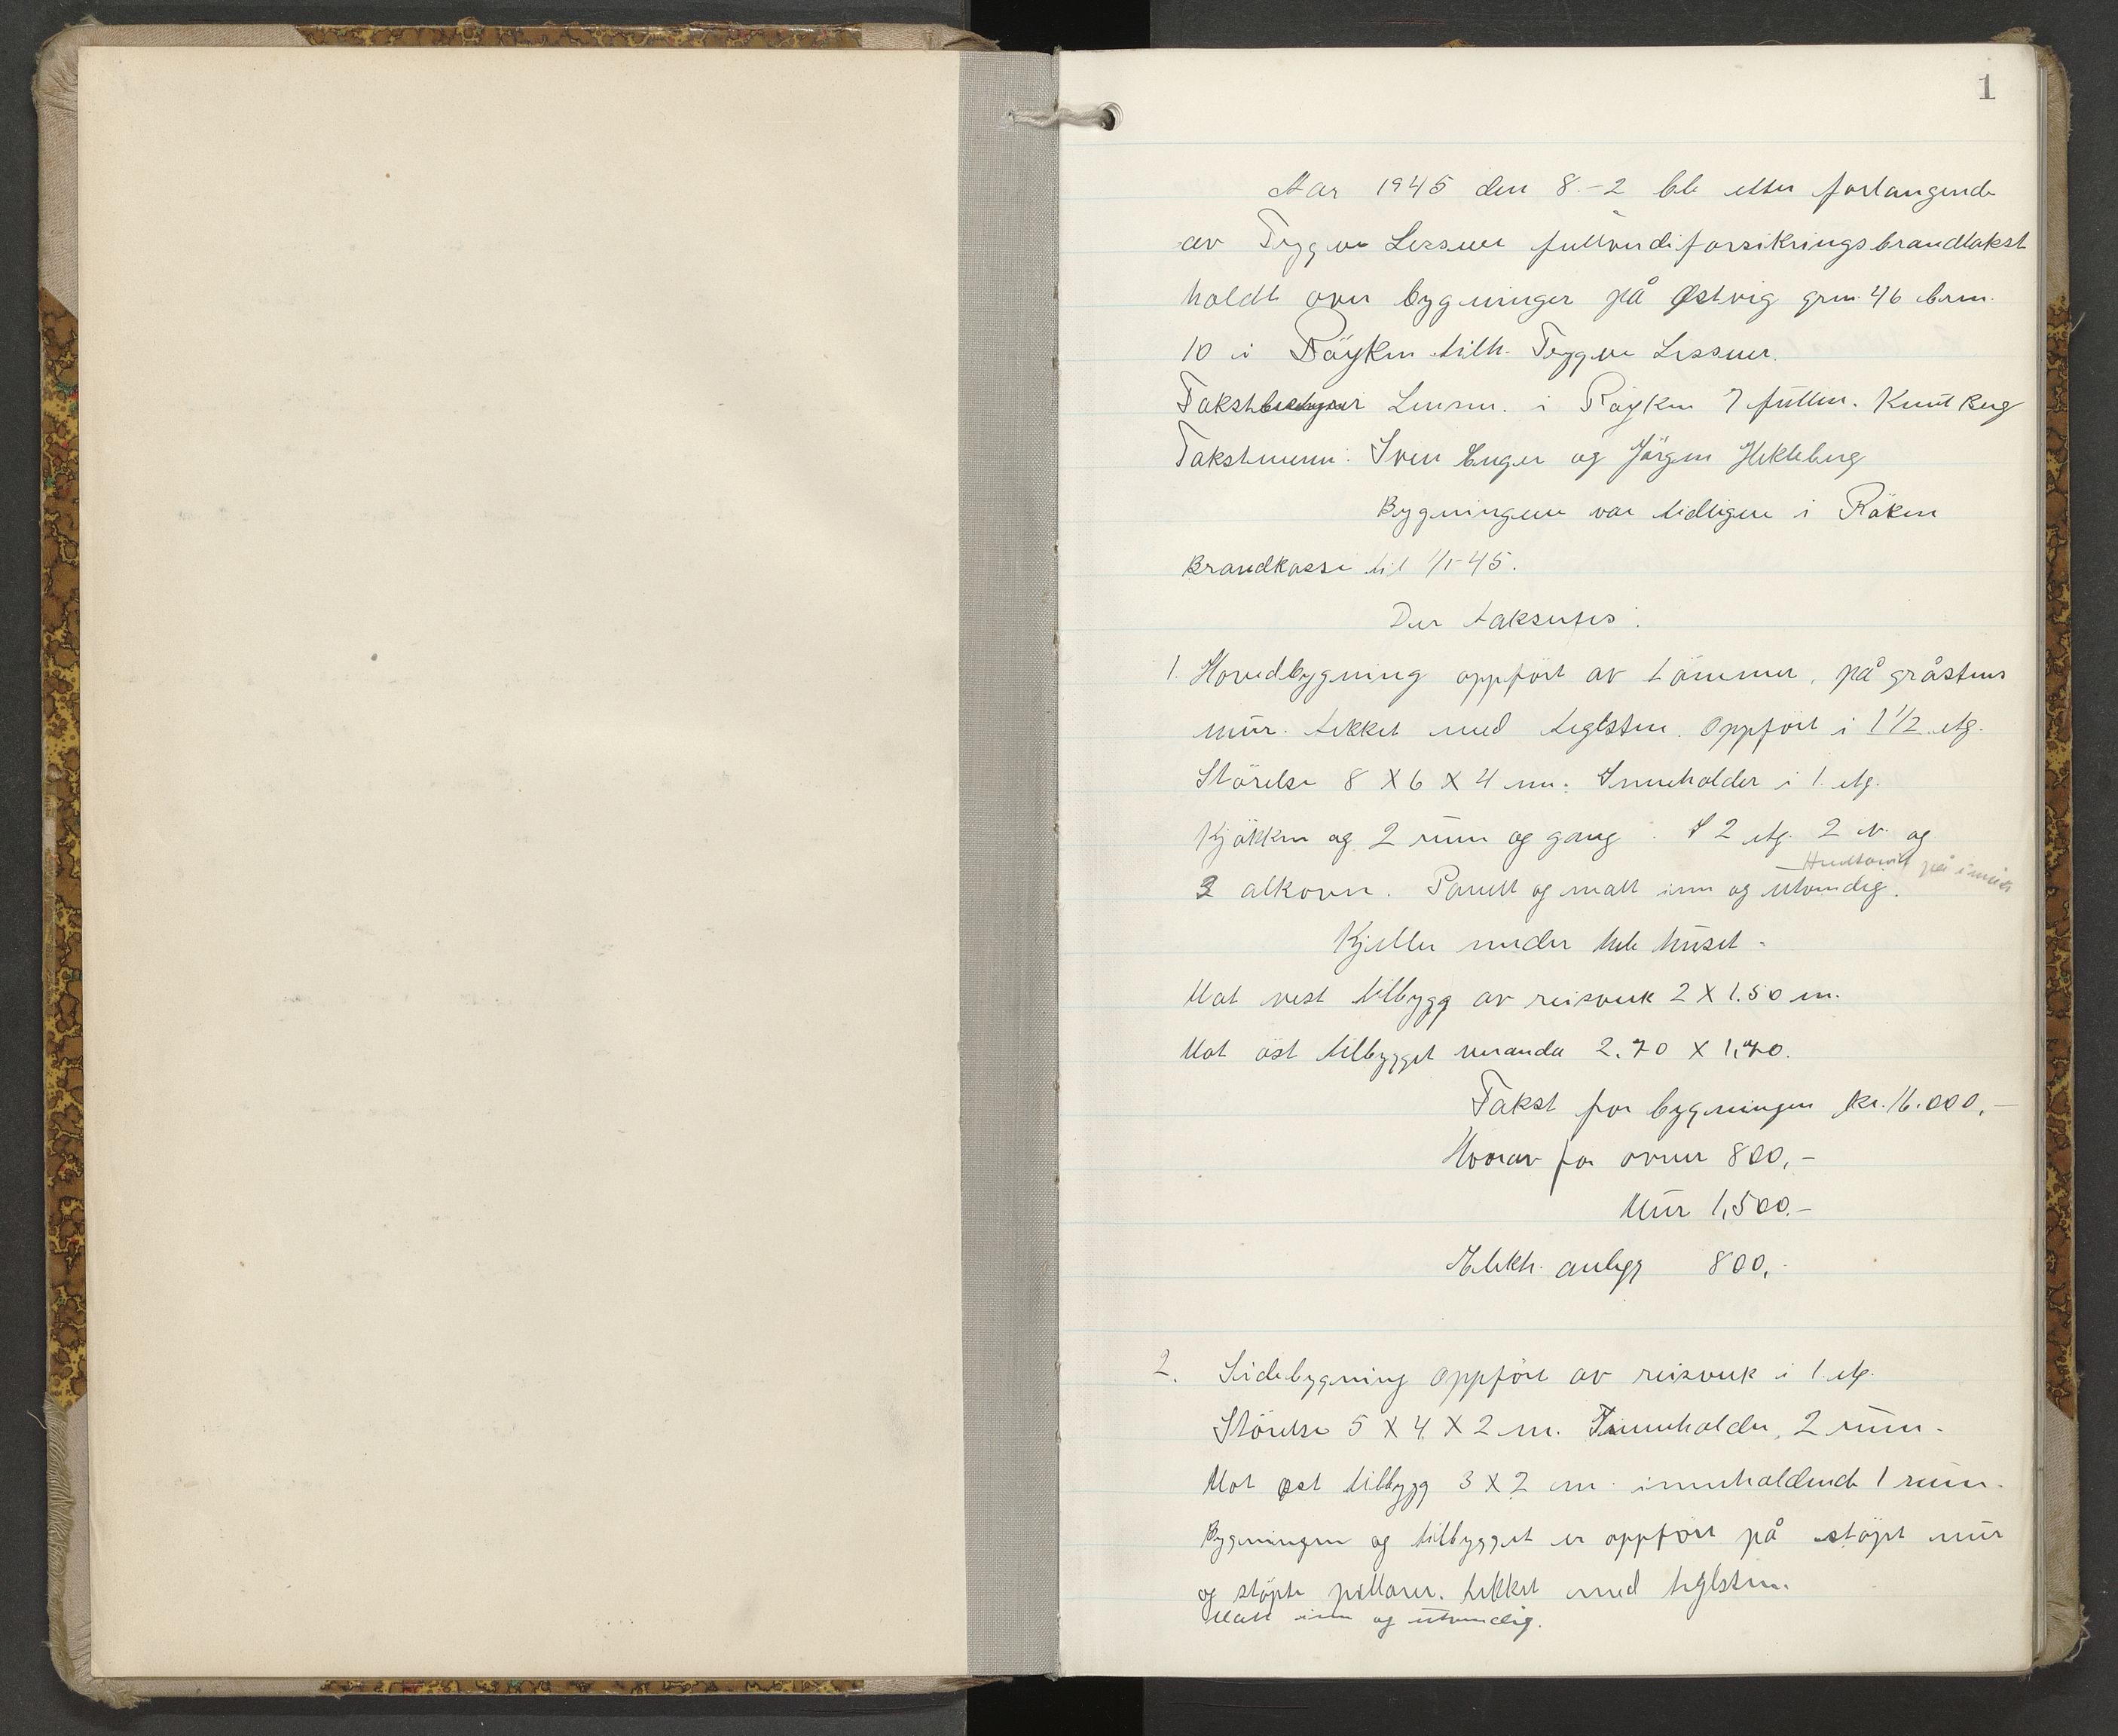 1
Aar 1945 den 8.-2 ble etter forlangende
av Trygve Lessner fullverdiforsikringsbrandtakst
holdt over bygninger på Østvig grn. 46 brn.
10 i Röyken tilh. Trygve Lessner.
Takst Lensm. i Röyken 7 fullm. Knut Berg
Takstmenn: Sven Enger og Jörgen Hekleberg
Bygningene var tidligere i Röken
Brandkasse til 1/1-45.
Der taksertes:
1. Hovedbygning oppfört av tömmer, på gråstens
mur. tekket med teglsten. Oppfört i 1 1/2 etg.
Störelse 8 X 6 X 4 m. Inneholder i 1. etg.
Kjökken og 2 rum og gang. I 2 etg. 2 v. og
på innsia
3 alkover. Panelt og malt inn og utvendig.
Kjeller under hele huset.
Mot vest tilbygg av reisverk 2 X 1.50 m.
Mot öst tilbygget veranda 2.70 X 1,70.
Takst for bygningen kr. 16.000,-
Hvorav for ovner 800,-
Mur 1,500.-
Elektr. anlegg 800,-
2. Sidebygning oppfört av reisverk i 1. etg.
Störelse 5 X 4 X 2 m. Inneholder, 2 rum.
Mot øst tilbygg 3 X 2 m. inneholdende 1 rum.
Bygningen og tilbygget er oppfört på støpt mur
og stöpte pillarer. tekket med teglsten.
Malt inn og utvendig.